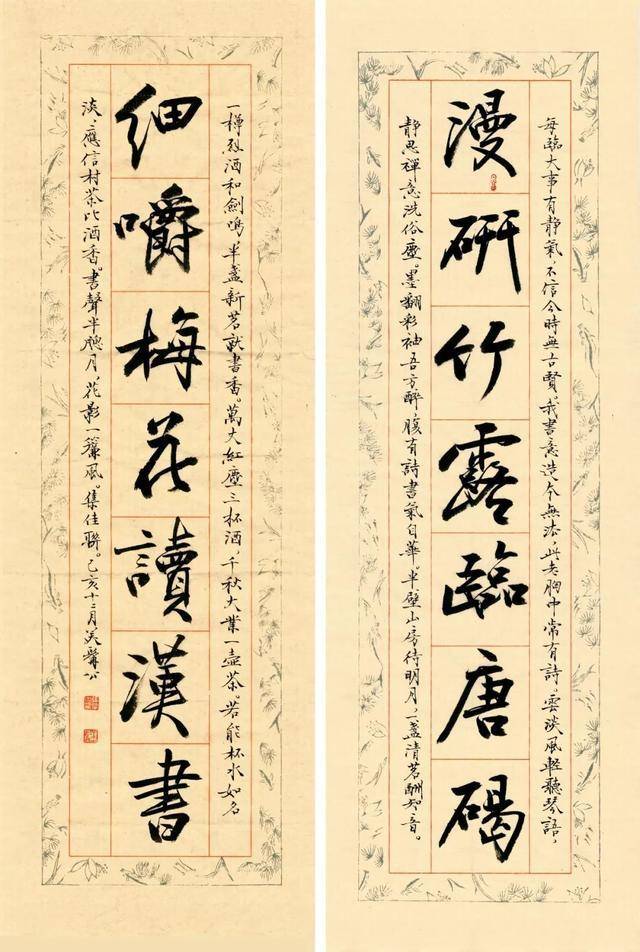 每臨大事有靜氣，不信今時無古賢。我書意造本無法，此老胸中常有詩。雲淡風輕聽琴語，
漫研竹露臨唐碣
靜思禪意洗俗塵。墨翻彩袖吾方醉，腹有詩書氣自華。半壁山房待明月，一盞清茗酬知音。
一樽烈酒和劍鳴，半盞新茗就書香。萬丈紅塵三杯酒，千秋大業一壺茶。若能杯水如名
細嚼梅花讀漢書
淡，應信村茶比酒香。書聲半牕月，花影一簾風。集佳聯。己亥十二月美髯公